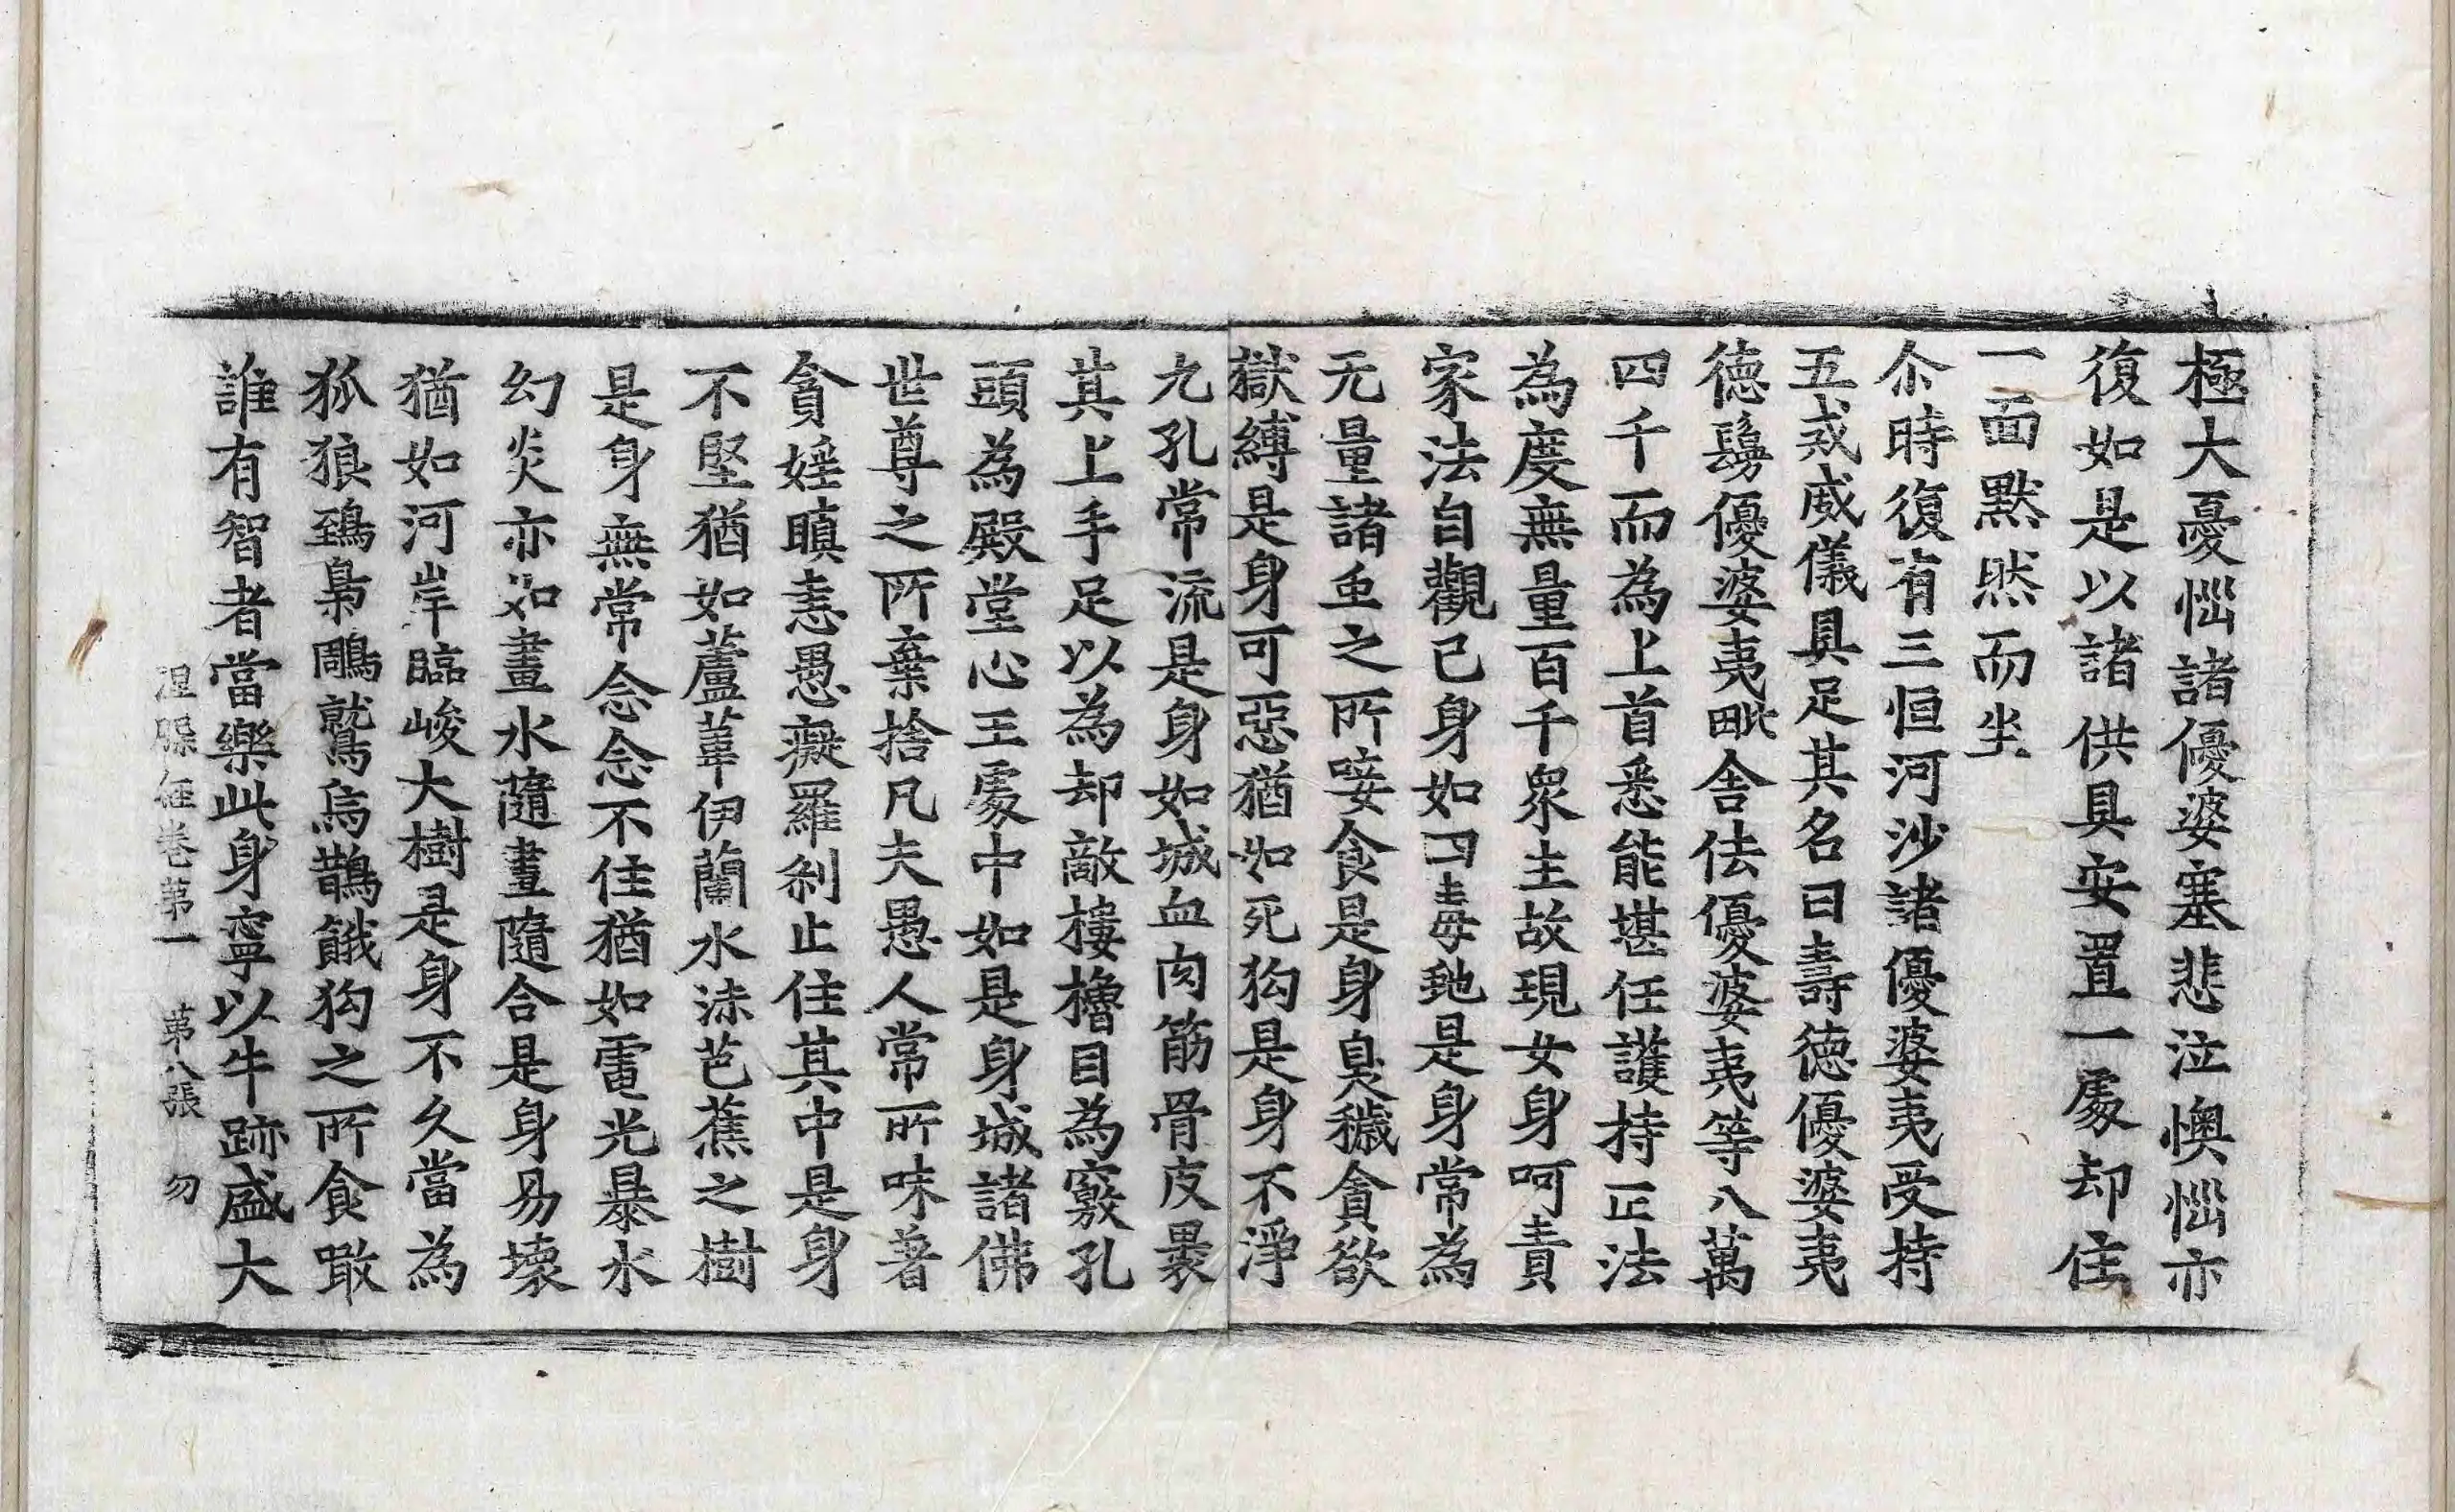 極大憂惱諸優婆塞悲泣懊惱亦
復如是以諸供具安置一處却住
一面黙然而坐
尒時復有三恒河沙諸優婆夷受持
五戒威儀具足其名曰壽德優婆夷
德鬘優婆夷毗舍佉優婆夷等八萬
四千而為上首悉能堪任護持正法
為度無量百千衆生故現女身呵責
家法自觀己身如四毒虵是身常為
无量諸虫之所唼食是身臭穢貪欲
獄縛是身可惡猶如死狗是身不淨
九孔常流是身如城血肉筋骨皮裹
其上手足以為却敵樓櫓目為竅孔
頭為殿堂心王處中如是身城諸佛
世尊之所棄捨凡夫愚人常所味著
貪婬瞋恚愚癡羅刹止住其中是身
不堅猶如蘆葦伊蘭水沫芭蕉之樹
是身無常念念不住猶如電光暴水
幻炎亦如畫水隨畫隨合是身易壞
猶如河岸臨峻大樹是身不久當為
狐狼鵄梟鵰鷲烏鵲餓狗之所食噉
誰有智者當樂此身寧以牛跡盛大
涅槃経卷第一 第八張 勿